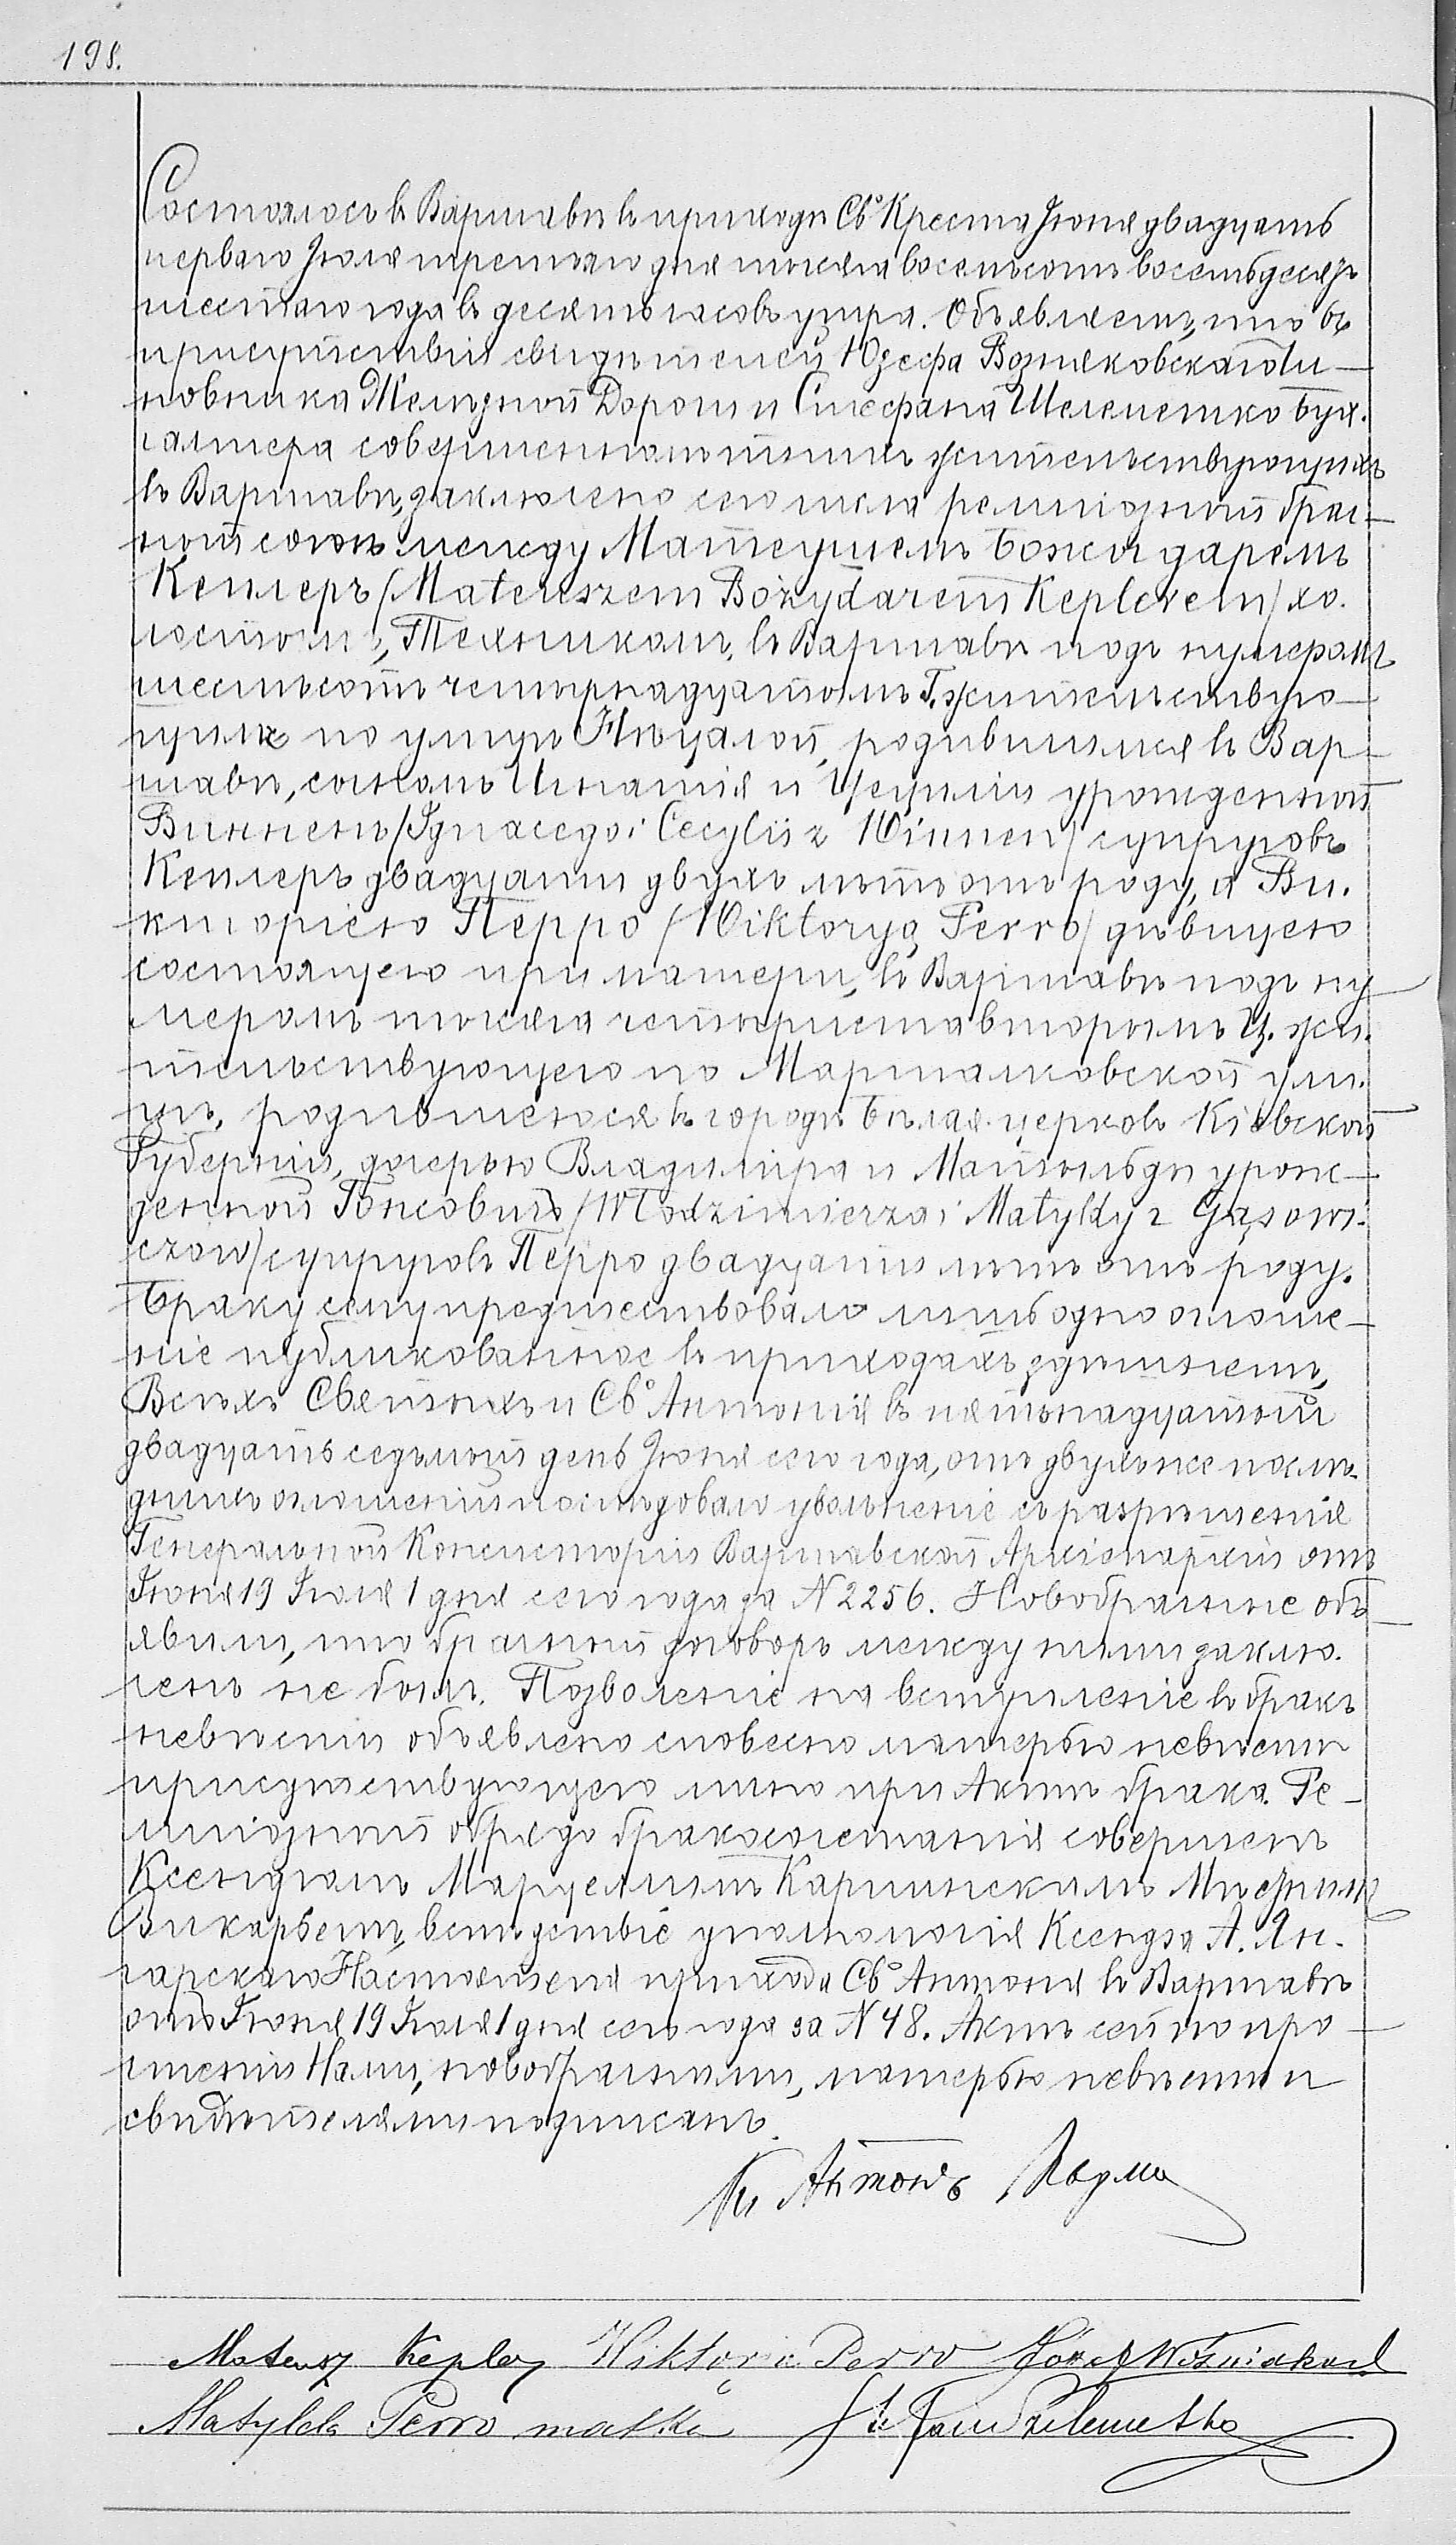 198.
Состоялось въ Варшавѣ въ приходѣ Св⁰ Креста Іюня двадцать
перваго Іюля третьяго дня тысяча восемьсотъ восемьдесятъ
шестаго года въ десять часовъ утра. Объявляемъ, что въ
присутствіи свидѣтелей Юзефа Возняковскаго Чи-
новника Желѣзной Дороги и Стефана Шелеметко Бух.
галтера совершеннолѣтнихъ жительствующихъ
въ Варшавѣ, заключено сего числа религіозный брач-
ный союзъ между Матеушемъ Божидаремъ
Кеплеръ /Mateuszem Bożydarem Keplerem/ хо.
лостымъ, Техникомъ, въ Варшавѣ подъ нумеромъ
шестьсотъ четырнадцатомъ Г. жительствую-
щимъ по улицѣ Нѣцалой, родившимся въ Вар-
шавѣ, сыномъ Игнатія и Цециліи урожденной
Винненъ /Ignacego i Cecylii z Winnen/ супруговъ
Кеплеръ двадцати двухъ лѣтъ отъ роду, и Ви.
кторіею Перро /Wiktoryą Perro/ дѣвицею
состоящею при матери, въ Варшавѣ подъ ну
меромъ тысяча четыриста вторымъ Ц. жи.
тельствующею по Маршалковской ули.
цѣ, родившеюся въ городѣ Бѣлая церковь Кіевской
Губерніи, дочерью Владиміра и Матильды урож-
денной Гонсовичъ /Włodzimierza i Matyldy z Gąsowi.
czów/ супруговъ Перро двадцати лѣтъ отъ роду.
Браку сему предшествовало лишь одно оглаше-
ніе публикованное въ приходахъ здѣшнемъ,
Всѣхъ Святыхъ и Св⁰ Антонія въ пятьнадцатый
двадцать седьмой день Іюня сего года, отъ двухъ же послѣ-
днихъ оглашеній послѣдовало увольненіе съ разрѣшенія
Генеральной Консисторіи Варшавской Архіепархіи отъ
Іюня 19 Іюля 1 дня сего года за N 2256. Новобрачные объ
явили, что брачный договоръ между ними заклю.
ченъ не былъ. Позволеніе на вступленіе въ бракъ
невѣсти объявлено словесно матерью невѣсти
присутствующею лично при Актѣ брака. Ре-
лигіозный обрядъ бракосочетанія совершенъ
Ксендзомъ Марцелимъ Карпинскимъ Мѣстнымъ
Викарьемъ, вслѣдствіе уполномочія Ксендза А. Ян.
чарскаго Настоятеля прихода Св⁰ Антонія въ Варшавѣ
отъ Іюня 19 Іюля 1 дня сего года за N 48. Актъ сей по про
чтеніи Нами, новобрачными, матерью невѣсти и
свидѣтелями подписанъ.
Кс Антонъ
Mateusz Kepler Wiktorja Perro Józef Woźniakowski
Matylda Perro matka Stefan Szelemetko